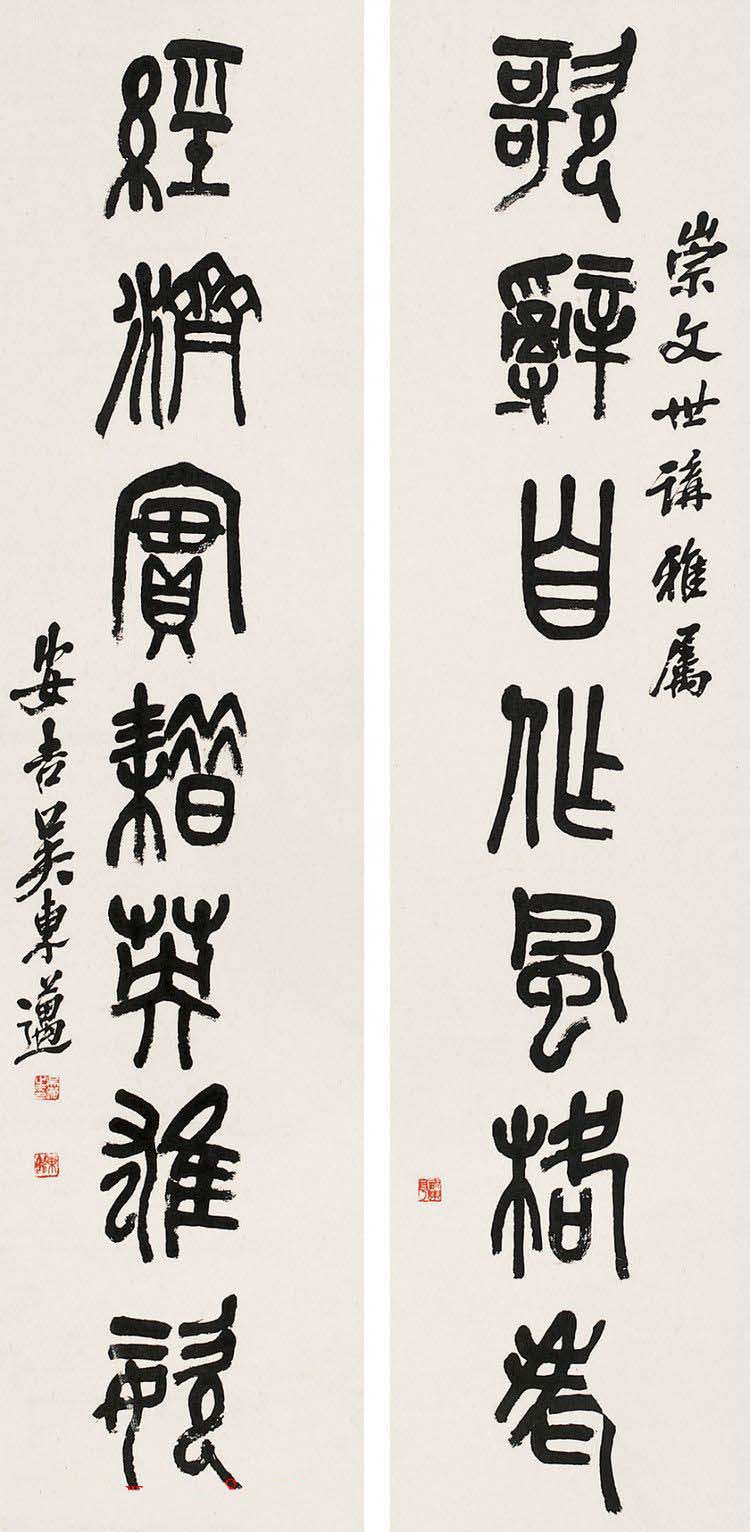 崇文世講雅屬
歌辭自作風格老
經濟實耤英雄姿
安吉吳東邁